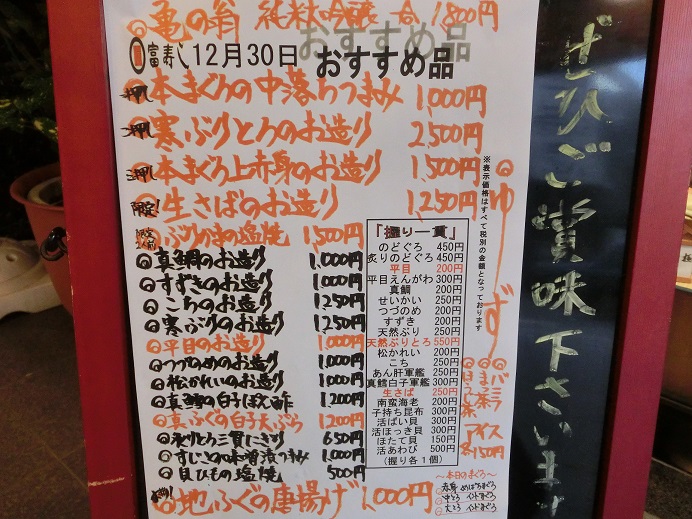 亀の翁 純米大吟醸 合 1,800円
おすすめ品
富寿し 12月30日 おすすめ品
押し 本まぐろの中落ちつまみ 1,000円
押し 寒ぶりとろのお造り 2,500円
押し 本まぐろ上赤身のお造り 1,500円
限定! 生さばのお造り 1,250円
ぶりかまの塩焼 1,500円
真鯛のお造り 1,000円
すずきのお造り 1,000円
こちのお造り 1,250円
寒ぶりのお造り 1,250円
平目のお造り 1,000円
つづのめのお造り 1,000円
松かれいのお造り 1,000円
真鱈の白子ぽん酢 1,200円
真ふぐの白子天ぷら 1,200円
三貫にぎり 650円
味噌漬つまみ 1,000円
貝ひもの塩焼 500円
地ふぐの唐揚げ 1,000円
※表示価格はすべて税別の金額となっております
「握り一貫」
のどぐろ 450円
炙りのどぐろ 450円
平目 200円
平目えんがわ 300円
真鯛 200円
せいかい 250円
つづのめ 200円
すずき 200円
天然ぶり 250円
天然ぶりとろ 550円
松かれい 200円
こち 250円
あん肝軍艦 250円
真鱈白子軍艦 300円
生さば 250円
南蛮海老 200円
子持ち昆布 300円
活ばい貝 300円
活ほっき貝 300円
ほたて貝 150円
活あわび 500円
(握り各1個)
ゆず
バニラ
まっ茶
ほうじ茶
アイス
各150円
~本日のまぐろ~
赤身 めばちまぐろ
中とろ インドまぐろ
大とろ インドまぐろ
ぜひご賞味下さいませ